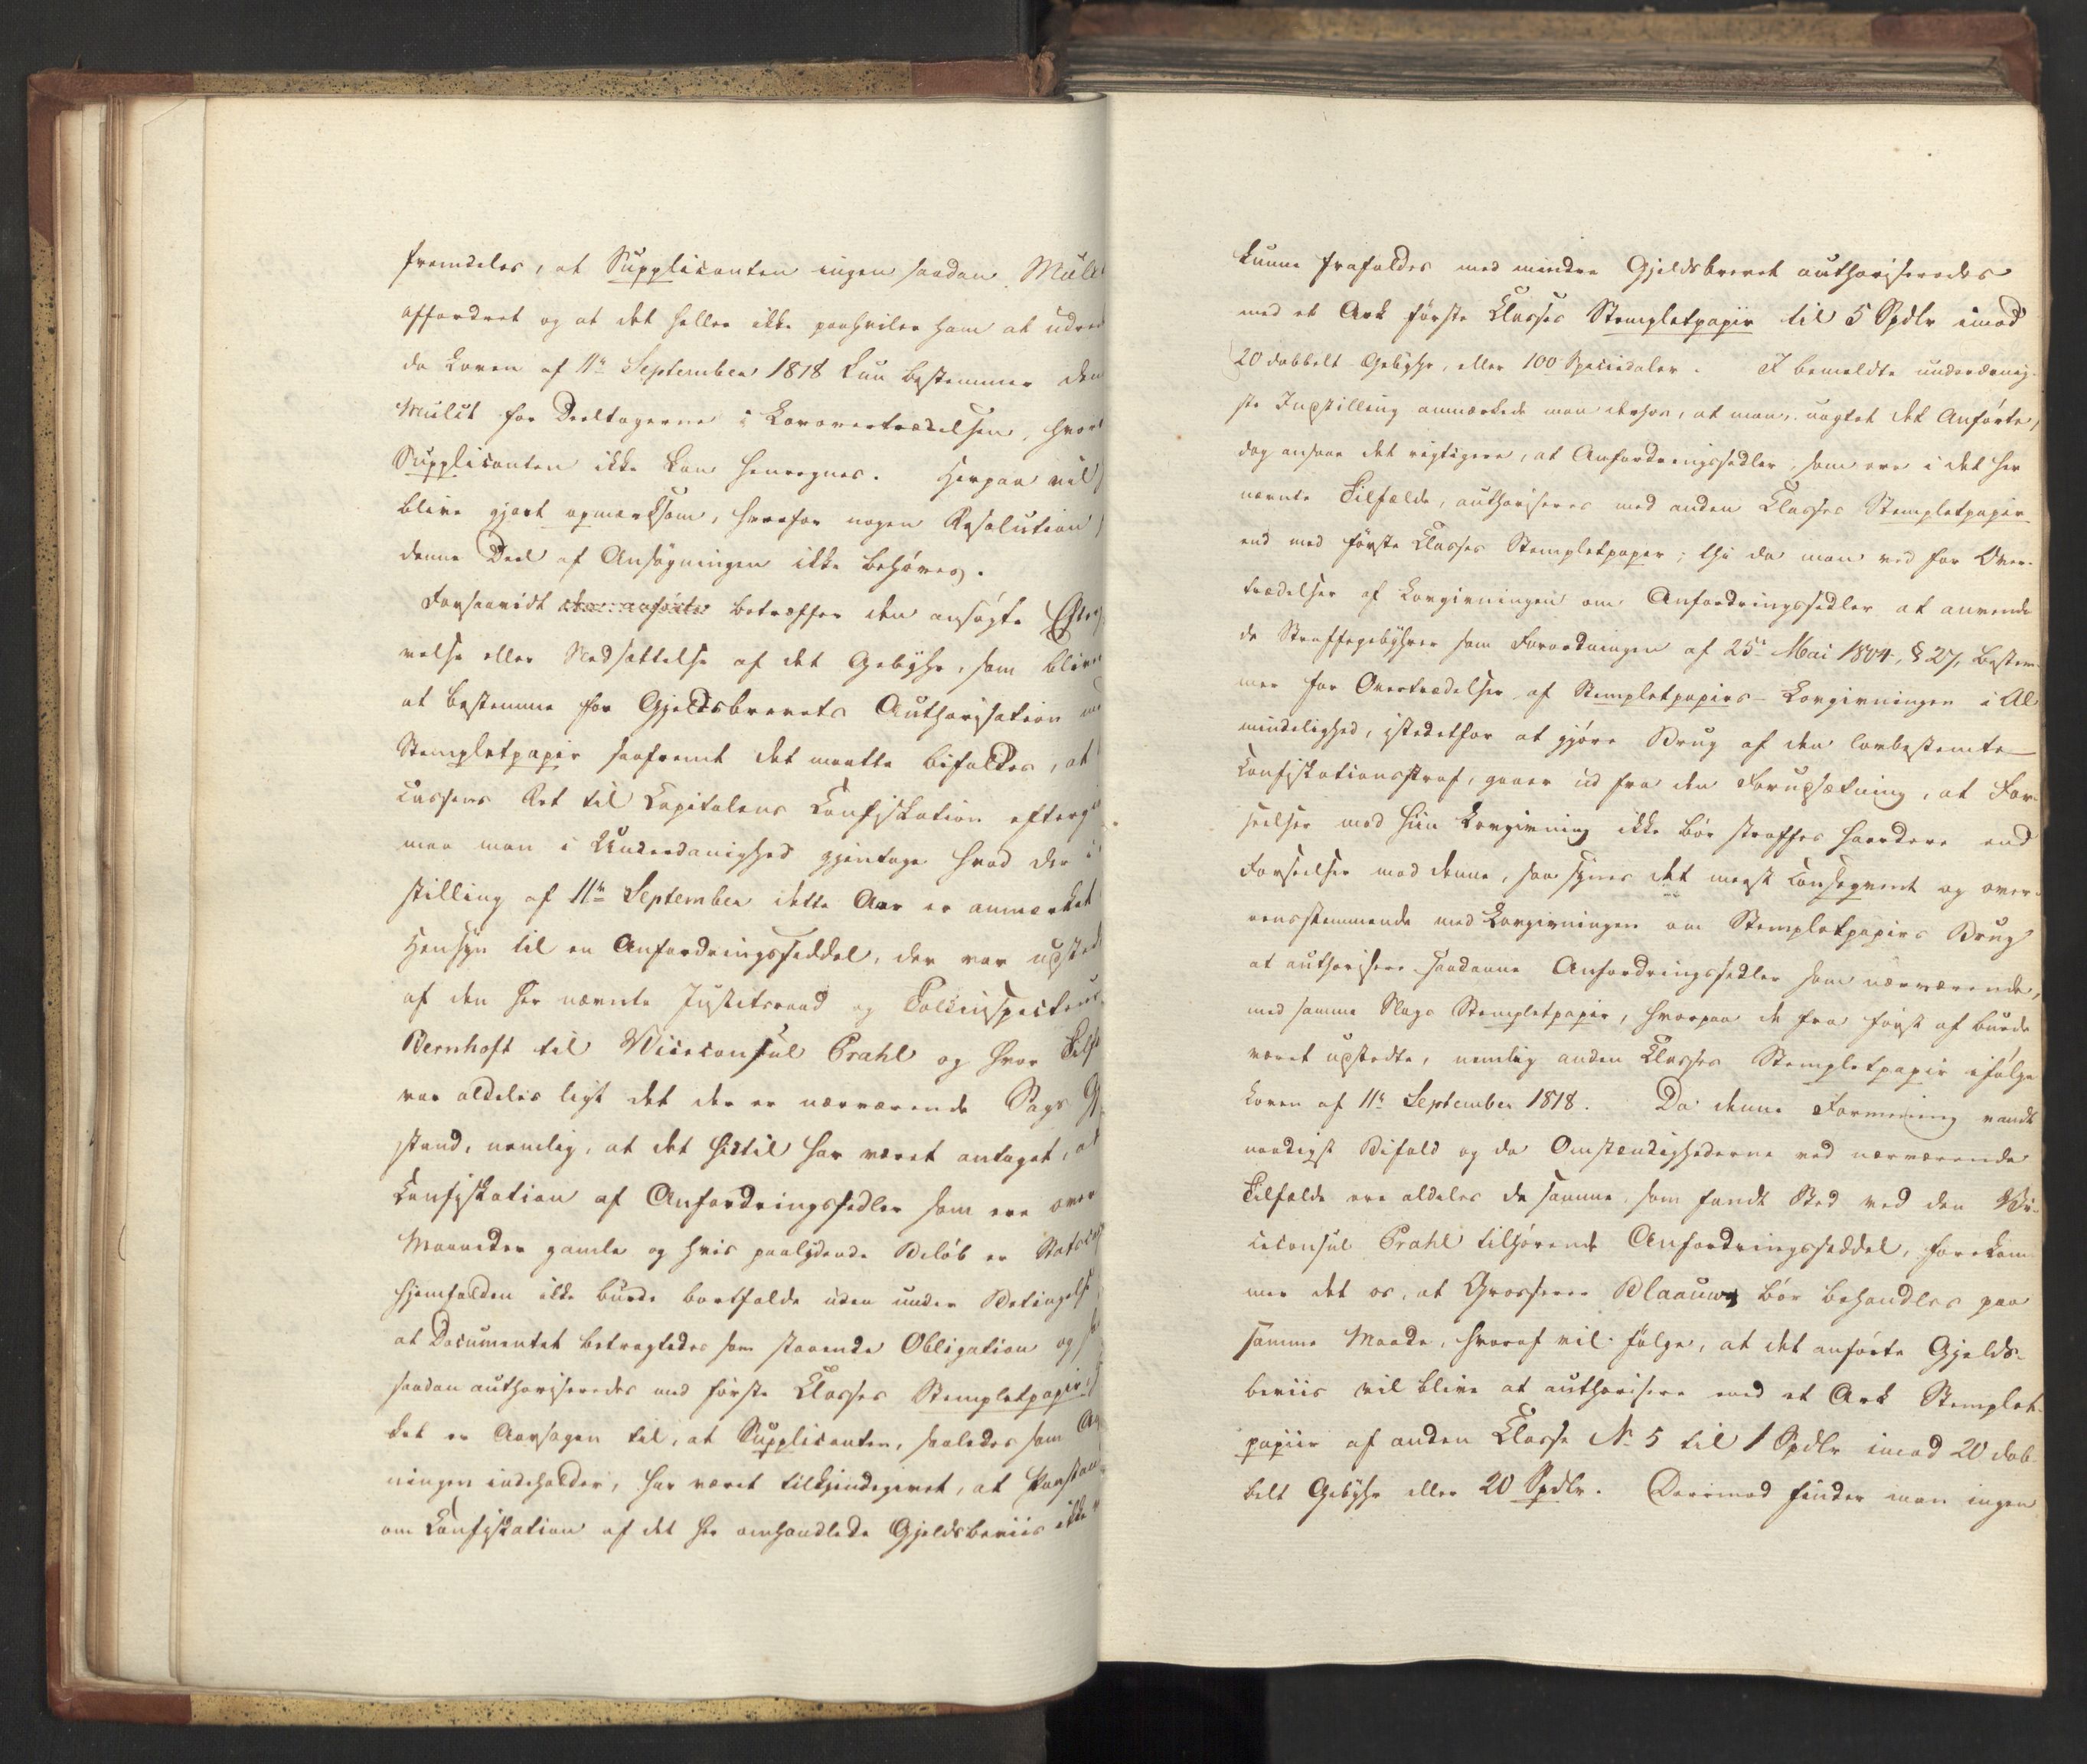 fremdeles, at Supplicanten ingen saadan Mulct
affordret og at det heller ikke paahviler ham at udrede
da Loven af 11te September 1818 kun bestemmer den
Mulct for Deeltagerne i Lovovertrædelsen, hvortil
Supplicanten ikke kan henregnes. Herpaa vil
blive gjort opmærksom, hvorfor nogen Resolution
denne Deel af Ansøgningen ikke behøves.
Forsaavidt betræffer den ansøgte Efterg
velse eller Nedsættelse af det Gebyhr, som bliver
at bestemme for Gjeldsbrevets Authorisation med
Stemplet papir saafremt det maatte bifaldes, at
Cassens Ret til Capitalens Confiskation eftergi
maa man i Underdanighed gjentage hvad der i
stilling af 11te September dette Aar er anmærket
Hensyn til en Anfordringsseddel, der var udsted
af den her nævnte Justitsraad og Toldinspecteur
Bernhoft til Viceconsul Prahl og hvor Tilf
var aldeles ligt det der er nærværende Sags Gj
stand, nemlig, at det hidtil har været antaget, at
Confiskation af Anfordringssedler som ere over
Maaneder gamle og hvis paalydende Beløb er Statscas
hjemfalden ikke burde bortfalde uden under Betingelse
at Documentet betragtedes som staaende Obligation og
saadan authoriseredes med første Classes Stemplet papir,
det er Aarsagen til, at Supplicanten, saaledes som An
ningen indeholder, har været tilkjendegivet, at Paastan
om Confiskation af det her omhandlede Gjeldsbeviis ikke
kunne frafaldes med mindre Gjeldsbrevet authoriseredes
med et Ark første Classes Stempletpapir til 5 Spdlr imod
20 dobbelt Gebyhr, eller 100 Speciedaler. I bemeldte underdanig-
ste Indstilling anmærkede man derhos, at man, uagtet det Anførte,
dog ansaae det rigtigere, at Anfordringssedler, som ere i det her
nævnte Tilfælde, authoriseres med anden Classes Stempletpapir
end med første Classes Stempletpapir; thi da man ved for Over-
trædelser af Lovgivningen om Anfordringssedler at anvende
de Straffegebyhrer som Forordningen af 25de Mai 1804, § 27, bestem-
mer for Overtrædelser af Stempletpapirs-Lovgivningen i Al
mindelighed, istedetfor at gjøre Brug af den lovbestemte
Confiskationsstraf, gaaer ud fra den Forudsætning, at For-
seelser mod hiin Lovgivning ikke bør straffes haardere end
Forseelser mod denne, saa synes det meest consequent og over-
eensstemmende med Lovgivningen om Stempletpapirs Brug
at authorisere saadanne Anfordringssedler som nærværende,
med samme Slags Stempletpapir, hvorpaa de fra først af burde
været udstedte, nemlig anden Classes Stempletpapir ifølge
Loven af 11te September 1818. Da denne Formening vandt
naadigst Bifald og da Omstændighederne ved nærværende
Tilfælde ere aldeles de samme, som fandt Sted ved den Vi-
ceconsul Prahl tilhørende Anfordringsseddel, forekom-
mer det os, at Grosserer Blaauw bør behandles paa
samme Maade, hvoraf vil følge, at det anførte Gjelds-
beviis vil blive at authorisere med et Ark Stemplet
papiir af anden Classe No 5 til 1 Spdlr imod 20 dob-
belt Gebyhr eller 20 Spdlr. Derimod finder man ingen